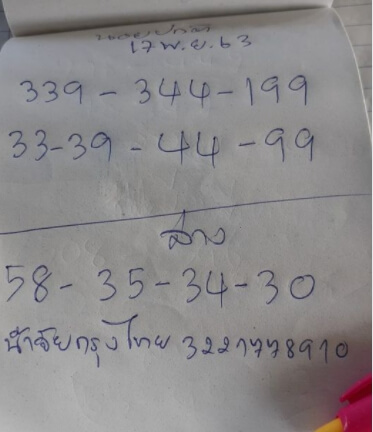 17 พ.ย. 63
339 - 344 - 199
33 - 39 - 44 - 99
ล่าง
58 - 35 - 34 - 30
น้าชัยกรุงไทย 3221778910